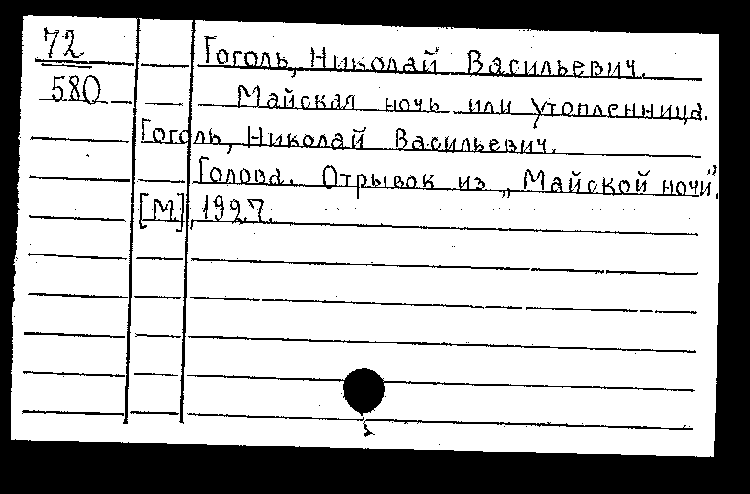 72 Гоголь, Николай Васильевич.
580 Майская ночь или утопленница.
Гоголь, Николай Васильевич.
Голова. Отрывок из „Майской ночи".
[М.], 1927.